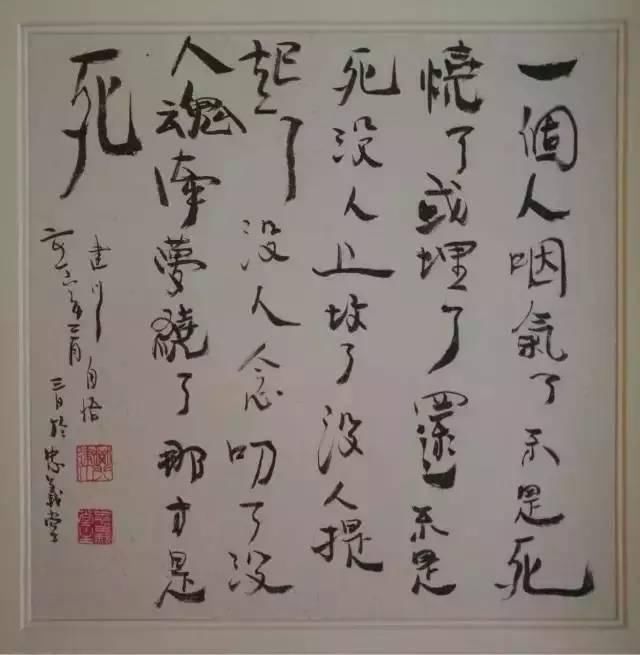 一個人咽氣了不是死
燒了或埋了還不是
死没人上坟了没人提
起了没人念叨了没
人魂牽夢繞了那才是
死
建川自悟
二月三日於忠義堂